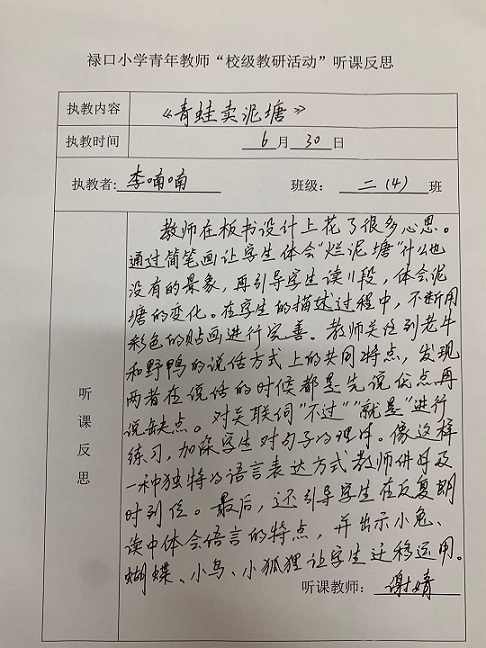 禄口小学青年教师“校级教研活动”听课反思
执教内容 《青蛙卖泥塘》
执教时间 6月30日
执教者：李喃喃 班级：二（4）班
听课反思
教师在板书设计上花了很多心思。
通过简笔画让学生体会“烂泥塘”什么也
没有的景象，再引导学生读11段，体会泥
塘的变化。在学生的描述过程中，不断用
彩色的贴画进行完善。教师关注到老牛
和野鸭的说话方式上的共同特点，发现
两者在说话的时候都是先说优点再
说缺点。对关联词“不过”“就是”进行
练习，加深学生对句子的理解。像这样
一种独特的语言表达方式教师讲得及
时到位。最后，还引导学生在反复朗
读中体会语言的特点，并出示小兔、
蝴蝶、小鸟、小狐狸让学生迁移运用。
听课教师：谢婧